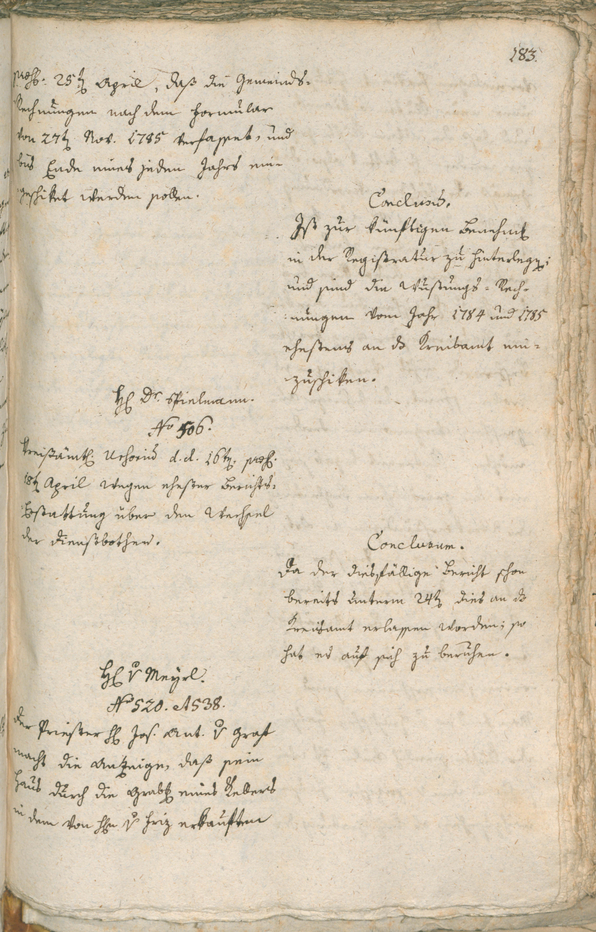 183.
præs. 25t April, daß die Gemeinds-
Rechnungen nach dem Formular
von 27t Nov. 1785 verfasset, und
bis Ende eines jeden Jahrs ein-
geschiket werden sollen.
Conclusū.
Ist zur künftigen Benehmē
in der Registratur zu hinterlegē;
und sind die Rech-
nungen vom Jahr 1784 und 1785
ehestens an das Kreisamt ein-
zuschiken.
H. Dr. Spielmann.
No 506.
Kreisämtl. d. d. 16t. præs.
18t April wegen ehester Berichts-
Erstattung über den Wechsel
der Dienstbothen.
Conclusum.
Da der diesfällige Bericht schon
bereits unterm 24t dies an das
Kreisamt erlassen worden; so
hat es auf sich zu beruhen.
H. v Meyrl.
No 520. et 538.
Der Priester H. Jos. Ant. v Graff
macht die Anzeige, daß sein
Haus durch die Grabg eines Kellers
in dem von H. v erkauften